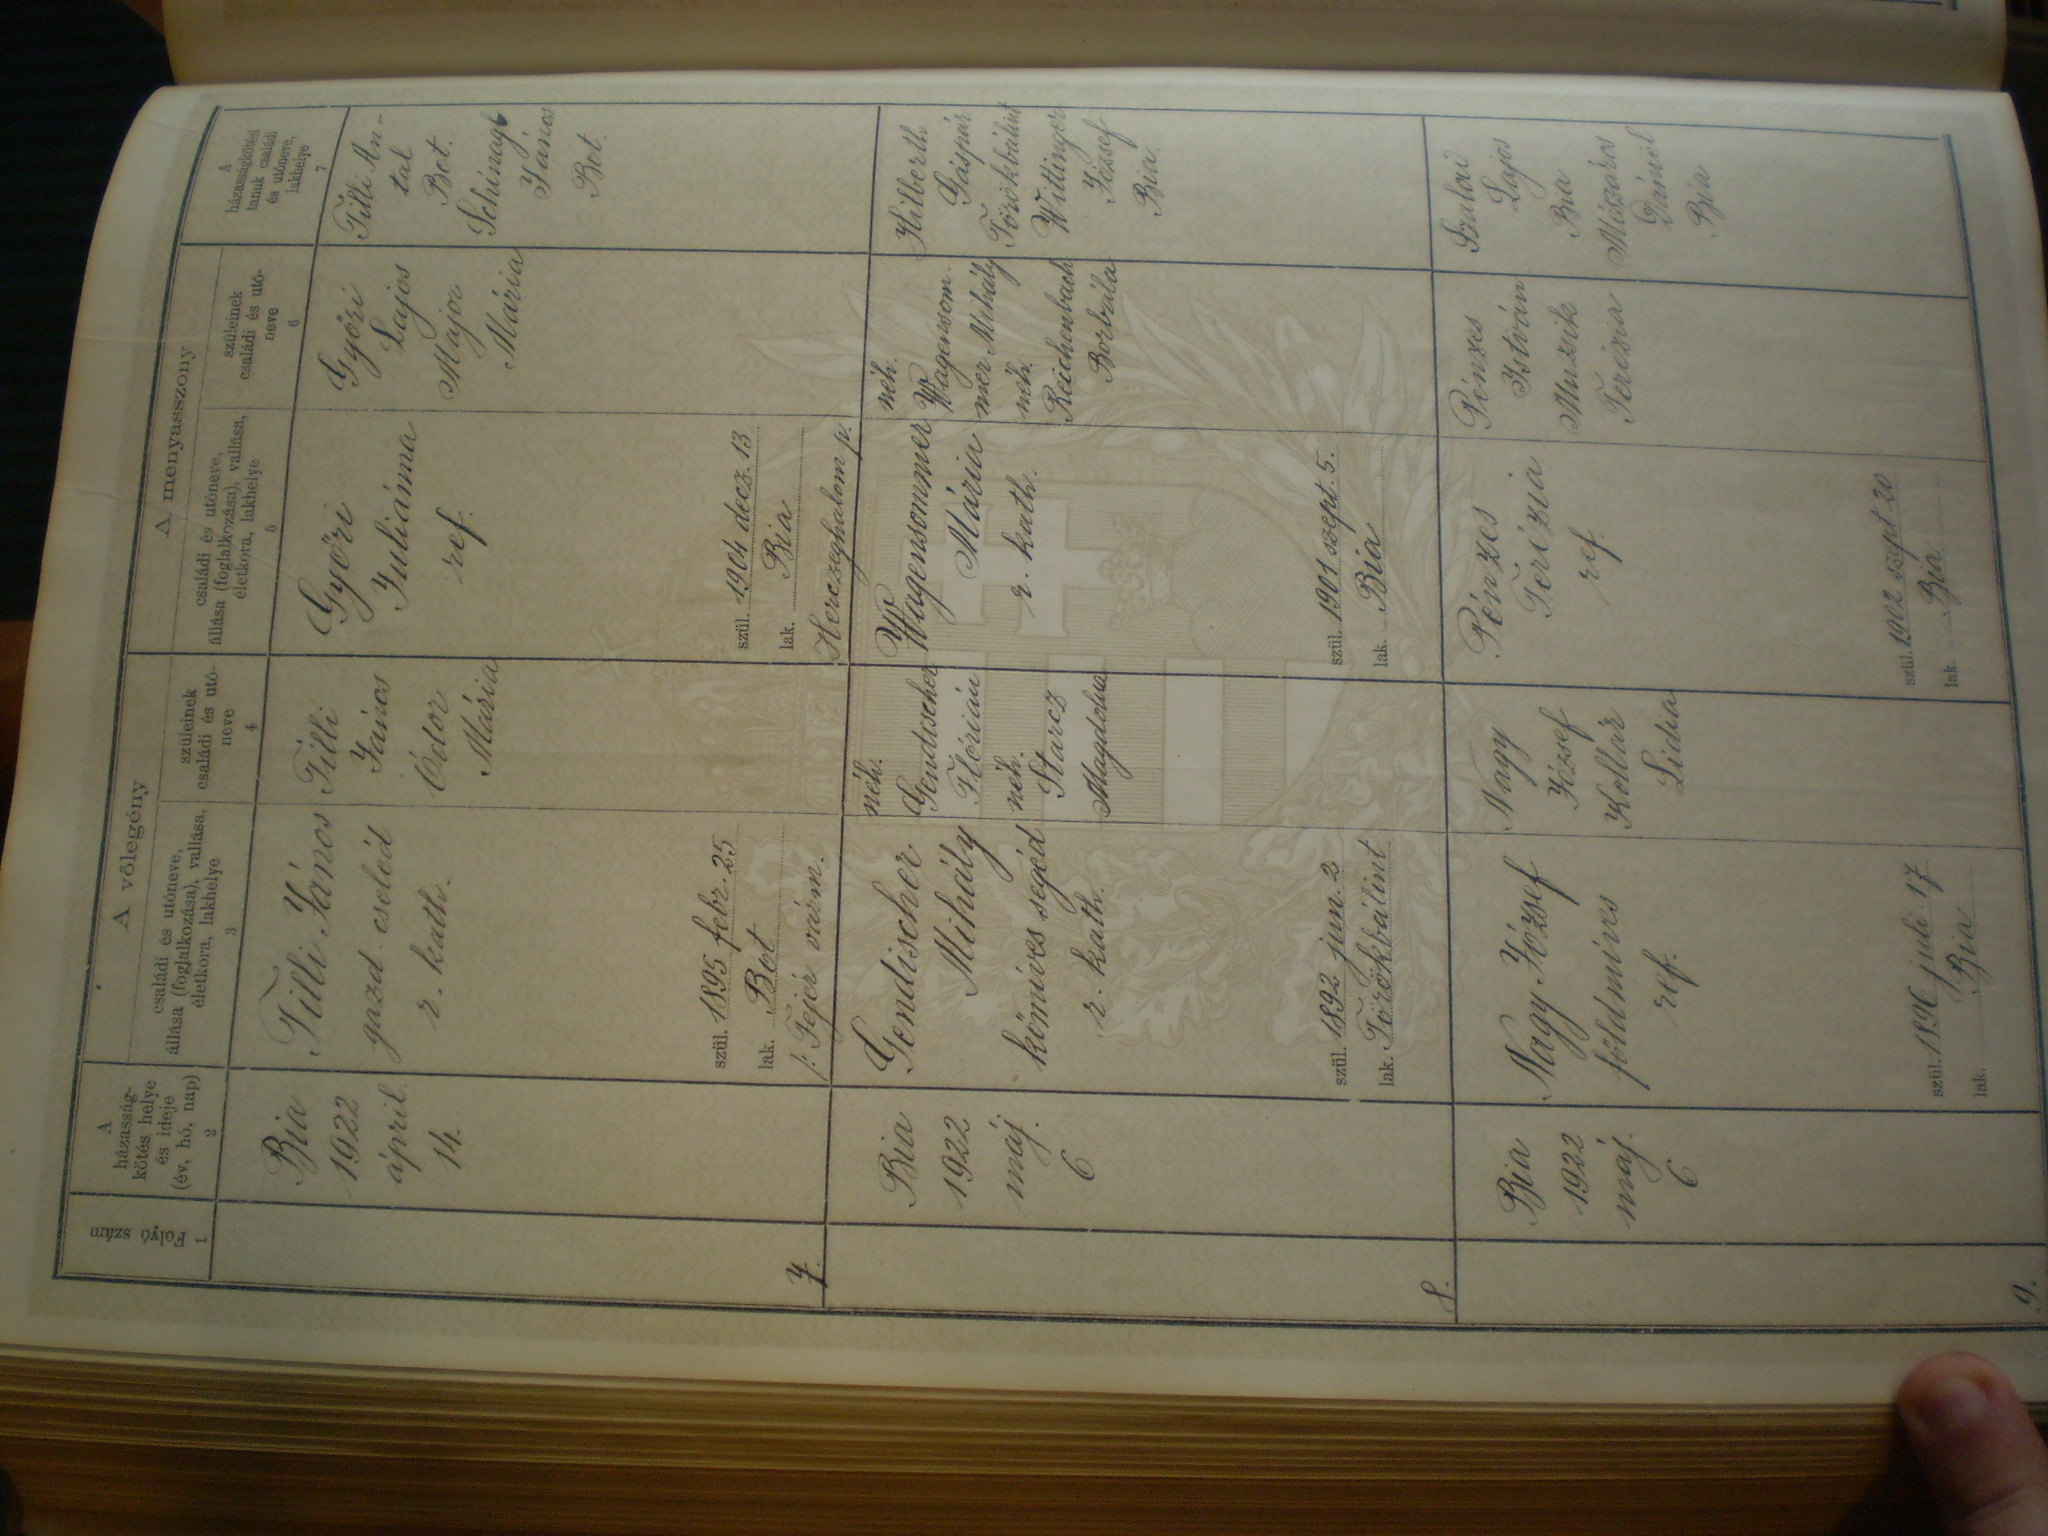 Folyó szám
1
A
házasság-
kötés helye
és ideje
(év, hó, nap)
2
A vőlegény
családi és utóneve,
állása (foglalkozása), vallása,
életkora, lakhelye
3
szüleinek
családi és utó-
neve
4
A menyasszony
családi és utóneve,
állása (foglalkozása), vallása,
életkora, lakhelye
5
szüleinek
családi és utó-
neve
6
A
házasságkötési
tanuk családi
és utóneve,
lakhelye
7
7.
Bia
1922
ápril
14.
Tilli János
gazd. cseléd
r. kath.
szül. 1895 febr. 25
lak. Bot
/: Fejér várm.
Tilli
János
Ódor
Mária
Győri
Juliánna
ref.
szül. 1904 decz. 13
lak. Bia
Herczeghalom p.
Győri
Lajos
Major
Mária
Tilli An-
tal
Bot.
János
Bot.
8.
Bia
1922
máj.
6
Gendischer
Mihály
kőmives segéd
r. kath.
szül. 1892 jun. 2
lak. Törökbálint
néh.
Gendischer
Flórián
néh.
Starcz
Magdolna
Wagensommer
Mária
r. kath.
szül. 1901 szept. 5.
lak. Bia
néh.
Wagensom-
mer Mihály
néh.
Reichenbach
Borbála
Hilberth
Gáspár
Törökbálint
Wittinger
József
Bia.
9.
Bia
1922
máj.
6
Nagy József
földmíves
ref.
szül. 1896 juli 17
lak. Bia
Nagy
József
Kollár
Lidia
Pénzes
Terézia
ref.
szül. 1902 szept. 20
lak. Bia
Pénzes
István
Muzsik
Terézia
Szalai
Lajos
Bia
Mészáros
Dániel
Bia